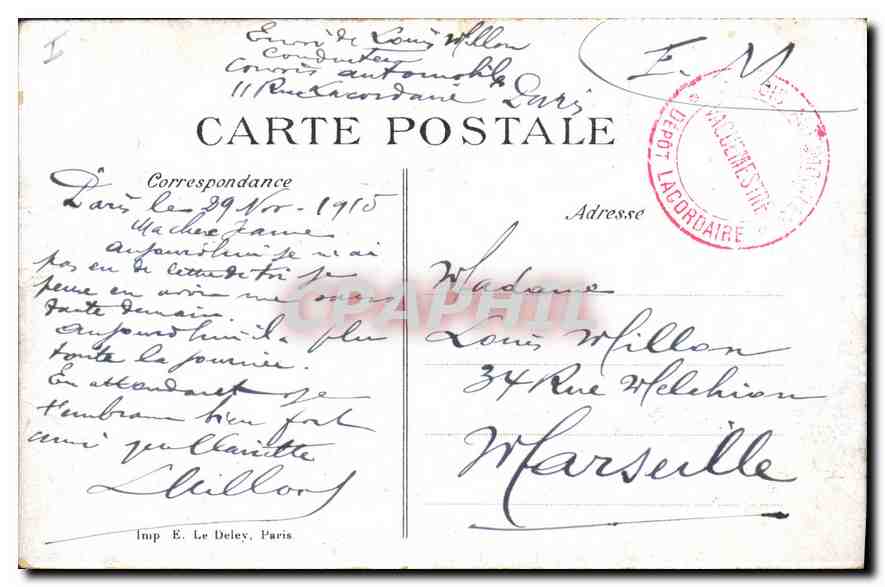 I
Envoi de Louis Millon
Conducteur
Convois automobiles
11 Rue Lacordaire Paris
E. M
CARTE POSTALE
VAGUEMESTRE
* DÉPOT LACORDAIRE *
Correspondance
Paris le 29 Nov - 1915
Ma chere
aujourd'hui je n'ai
pas eu de lettre de toi je
pense en avoir une sans
doute demain.
aujourd'hui il a plu
toute la journée.
En attendant je
t'embrasse bien fort
ainsi que
LMillon
Adresse
Madame
Louis Millon
34 Rue Melchion
Marseille
CPAPHIL
Imp E. Le Deley, Paris